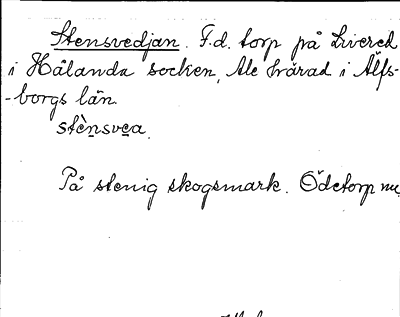 Stensvedjan. F.d. torp på Livered
i Hålanda socken, Ale härad i Älfs-
-borgs län.
stènsvea.
På stenig skogsmark. Ödetorp nu